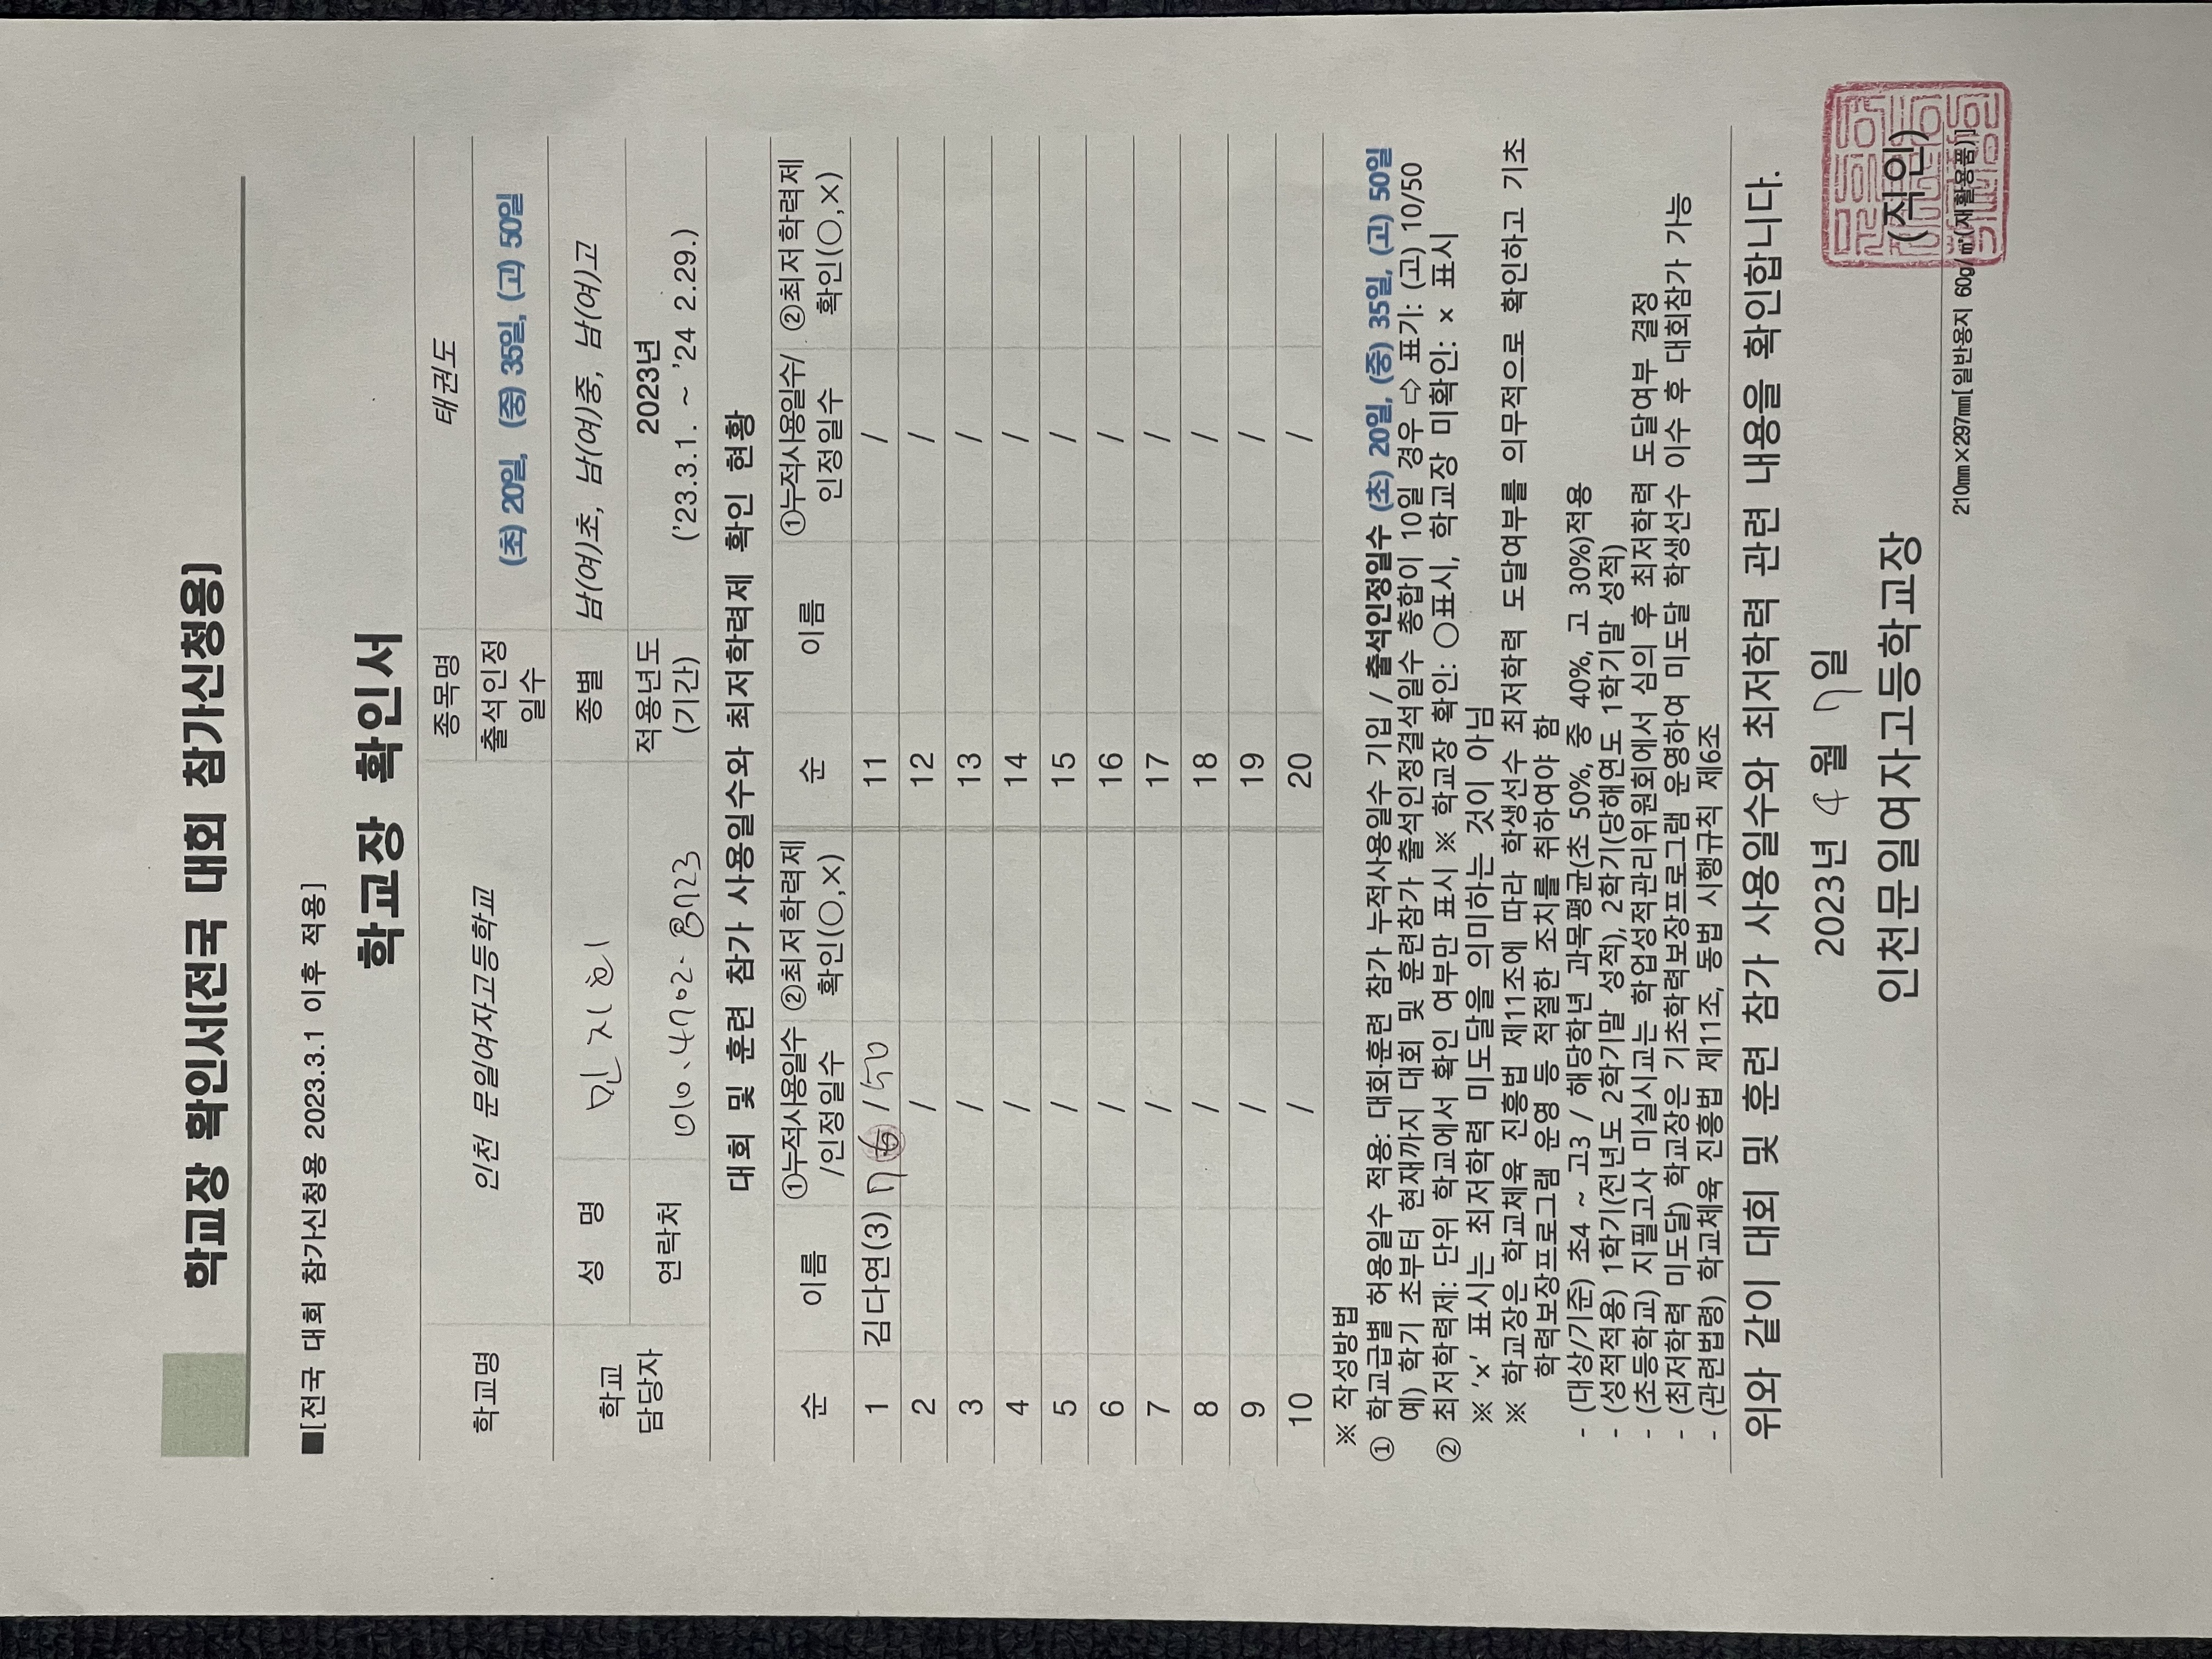 학교장 확인서(전국 대회 참가신청용)
■[전국 대회 참가신청용 2023.3.1 이후 적용]
학교장 확인서
학교명 인천 문일여자고등학교 종목명 태권도
출석인정일수 (초) 20일, (중) 35일, (고) 50일
학교 담당자 성 명 민지희 종별 남(여)초, 남(여)중, 남(여)고
연락처 010. 4702- 8723 적용년도 (기간) 2023년 ('23.3.1. ~ '24 2.29.)
대회 및 훈련 참가 사용일수와 최저학력제 확인 현황
순 이름 ①누적사용일수/인정일수 ②최저학력제 확인(○,×) 순 이름 ①누적사용일수/인정일수 ②최저학력제 확인(○,×)
1 김다연(3) 7 / 50 11 /
2 / 12 /
3 / 13 /
4 / 14 /
5 / 15 /
6 / 16 /
7 / 17 /
8 / 18 /
9 / 19 /
10 / 20 /
※ 작성방법
① 학교급별 허용일수 적용: 대회·훈련 참가 누적사용일수 기입 / 출석인정일수 (초) 20일, (중) 35일, (고) 50일
예) 학기 초부터 현재까지 대회 및 훈련참가 출석인정결석일수 총합이 10일 경우 ⇨ 표기: (고) 10/50
② 최저학력제: 단위 학교에서 확인 여부만 표시 ※ 학교장 확인: ○표시, 학교장 미확인: × 표시
※ 'x' 표시는 최저학력 미도달을 의미하는 것이 아님
※ 학교장은 학교체육 진흥법 제11조에 따라 학생선수 최저학력 도달여부를 의무적으로 확인하고 기초
학력보장프로그램 운영 등 적절한 조치를 취하여야 함
- (대상/기준) 초4 ~ 고3 / 해당학년 과목평균(초 50%, 중 40%, 고 30%)적용
- (성적적용) 1학기(전년도 2학기말 성적), 2학기(당해연도 1학기말 성적)
- (초등학교) 지필고사 미실시교는 학업성적관리위원회에서 심의 후 최저학력 도달여부 결정
- (최저학력 미도달) 학교장은 기초학력보장프로그램 운영하여 미도달 학생선수 이수 후 대회참가 가능
- (관련법령) 학교체육 진흥법 제11조, 동법 시행규칙 제6조
위와 같이 대회 및 훈련 참가 사용일수와 최저학력 관련 내용을 확인합니다.
2023년 4 월 7 일
인천문일여자고등학교장 (직인)
210㎜×297㎜[일반용지 60g/㎡(재활용품)]